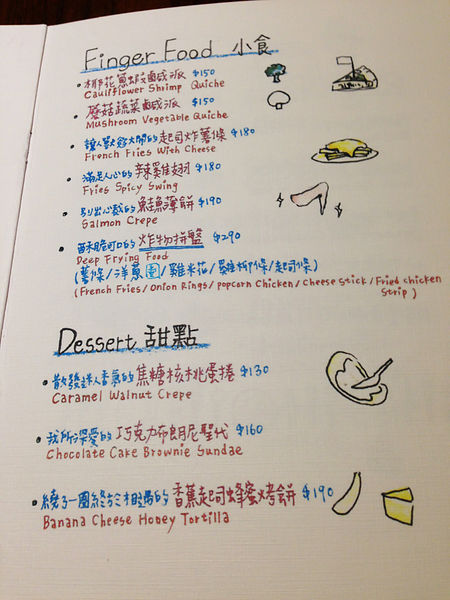 Finger Food 小食
椰花魚蝦鹹派 $150
Cauliflower Shrimp Quiche
蘑菇蔬菜鹹派 $150
Mushroom Vegetable Quiche
讓人歡飲大開的起司炸薯條 $180
French Fries With Cheese
滿足人心的辣雞翅 $180
Fries Spicy Swing
引出心底的鮭魚薄餅 $190
Salmon Crepe
酥脆可口的炸物拼盤 $290
Deep Frying Food
(薯條/洋蔥圈/雞米花/雞柳條/起司條)
(French Fries/Onion Rings/popcorn Chicken/Cheese Stick/Fried chicken Strip)
Dessert 甜點
散發迷人香氣的焦糖核桃蛋捲 $130
Caramel Walnut Crepe
我所深愛的巧克力布朗尼聖代 $160
Chocolate Cake Brownie Sundae
繞了一圈終於相遇的香蕉起司蜂蜜烤餅 $190
Banana Cheese Honey Tortilla